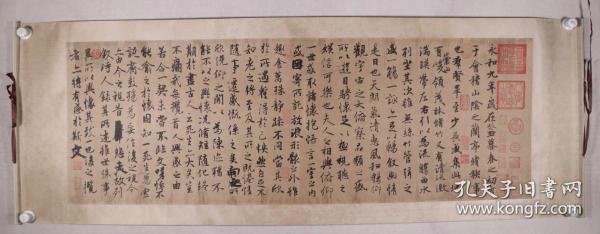 永和九年歲在癸丑暮春之初會
于會稽山陰之蘭亭脩稧事
也群賢畢至少長咸集此地
有崇山峻領茂林脩竹又有清流激
湍暎帶左右引以為流觴曲水
列坐其次雖無絲竹管弦之
盛一觴一詠亦足以暢敘幽情
是日也天朗氣清惠風和暢仰
觀宇宙之大俯察品類之盛
所以遊目騁懷足以極視聽之
娛信可樂也夫人之相與俯仰
一世或取諸懷抱悟言一室之內
或因寄所託放浪形骸之外雖
趣舍萬殊靜躁不同當其欣
於所遇蹔得於己怏然自足不
知老之將至及其所之既惓情
隨事遷感慨係之矣向之所
欣俛仰之閒以為陳迹猶不
能不以之興懷況脩短隨化終
期於盡古人云死生亦大矣豈
不痛哉每攬昔人興感之由
若合一契未嘗不臨文嗟悼不
能喻之於懷固知一死生為虛
誕齊彭殤為妄作後之視今
亦由今之視昔悲夫故列
敘時人錄其所述雖世殊事
異所以興懷其致一也後之攬
者亦將有感於斯文
孔夫子旧书网
www.kongfz.com